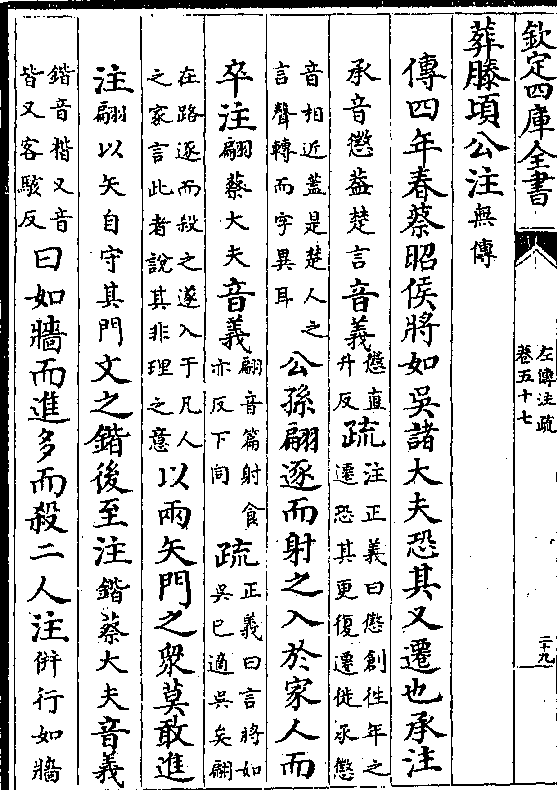 欽定四庫全書
左傳注疏
卷五十七
二十九
葬滕頃公注無傳
傳四年春蔡昭侯將如吳諸大夫恐其又遷也承注
承音懲葢楚言音義懲直升反疏注正義曰懲創往年之遷恐其更復遷徙承懲
音相近葢是楚人之言聲轉而字異耳公孫翩逐而射之入於家人而
卒注翩蔡大夫音義翩音篇射食亦反下同疏正義曰言將如吳巳適吳矣翩
在路逐而殺之遂入于凡人之家言此者說其非理之意以兩矢門之衆莫敢進
注翩以矢自守其門文之鍇後至注鍇蔡大夫音義
鍇音楷又音皆又客駭反曰如牆而進多而殺二人注併行如牆